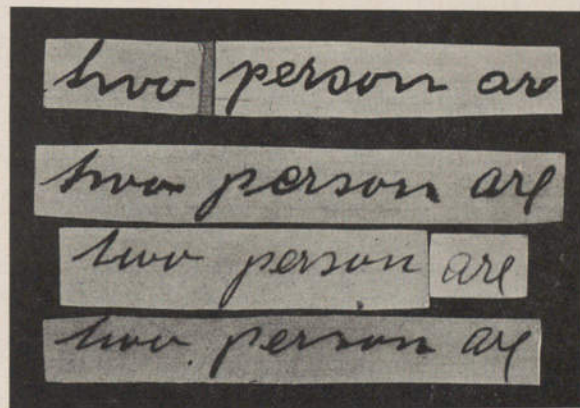 two person are
two person are
two person are
two person are